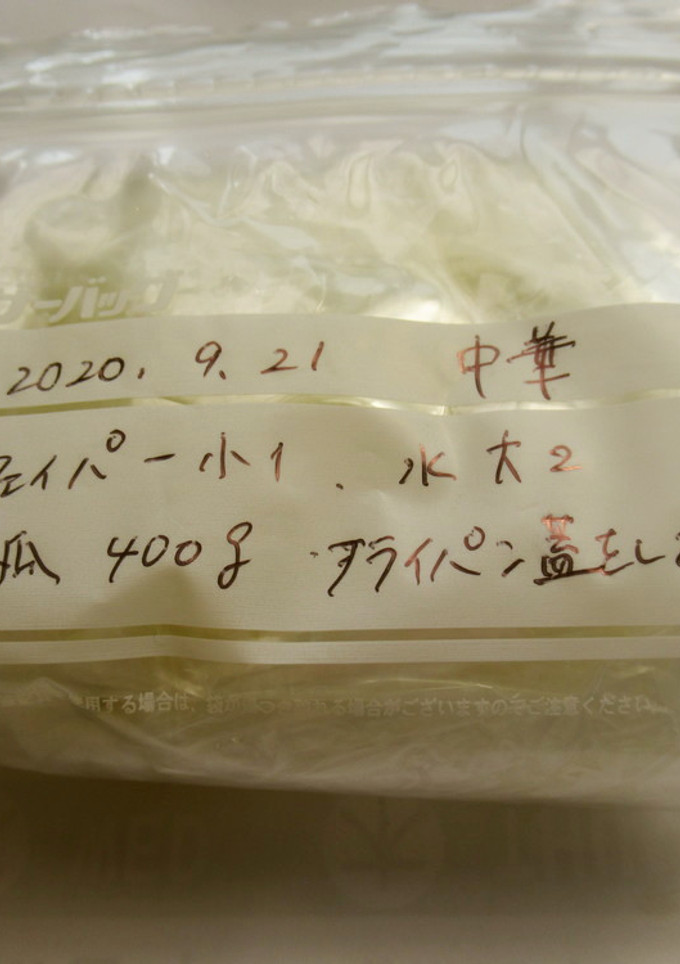 ナーバッグ
2020. 9. 21 中華
ェイパー小1、水大2
瓜 400g フライパン蓋をし
用する場合は、袋が れる場合がございますのでご注意ください。